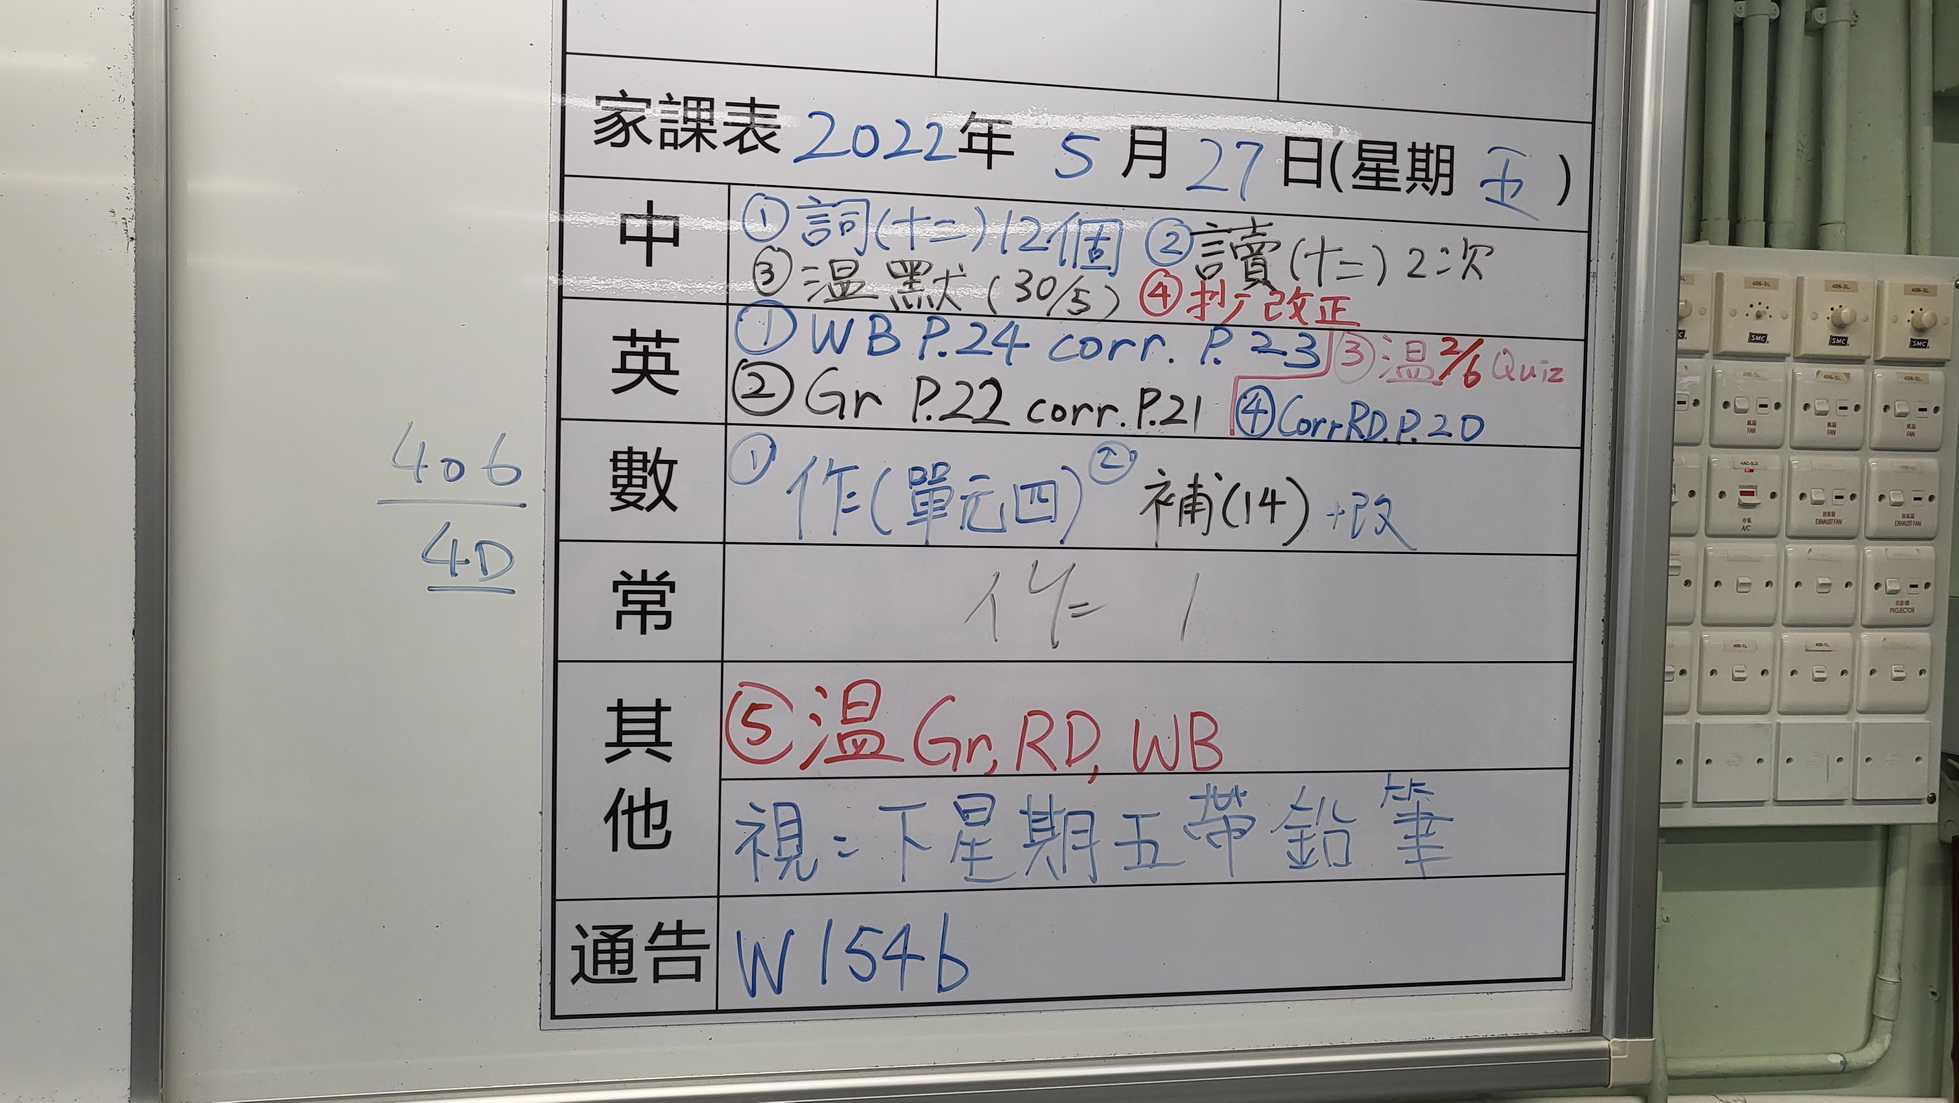 家課表 2022年 5月27日(星期 五)
中
① 詞(十二)12個 ② 讀(十二) 2次
③ 温默(30/5) ④ 抄改正
英
① WB P.24 corr. P.23 ③ 温 2/6 Quiz
② Gr P.22 corr. P.21 ④ Corr RD. P.20
數
① 作(單元四) ② 補(14)+改
常
作 1
其他
⑤ 温 Gr, RD, WB
視：下星期五帶鉛筆
通告
W1546
406
4D
406-2L
406-3L
SMC
SMC
SMC
FAN
FAN
FAN
A/C
EXHAUST FAN
EXHAUST FAN
PROJECTOR